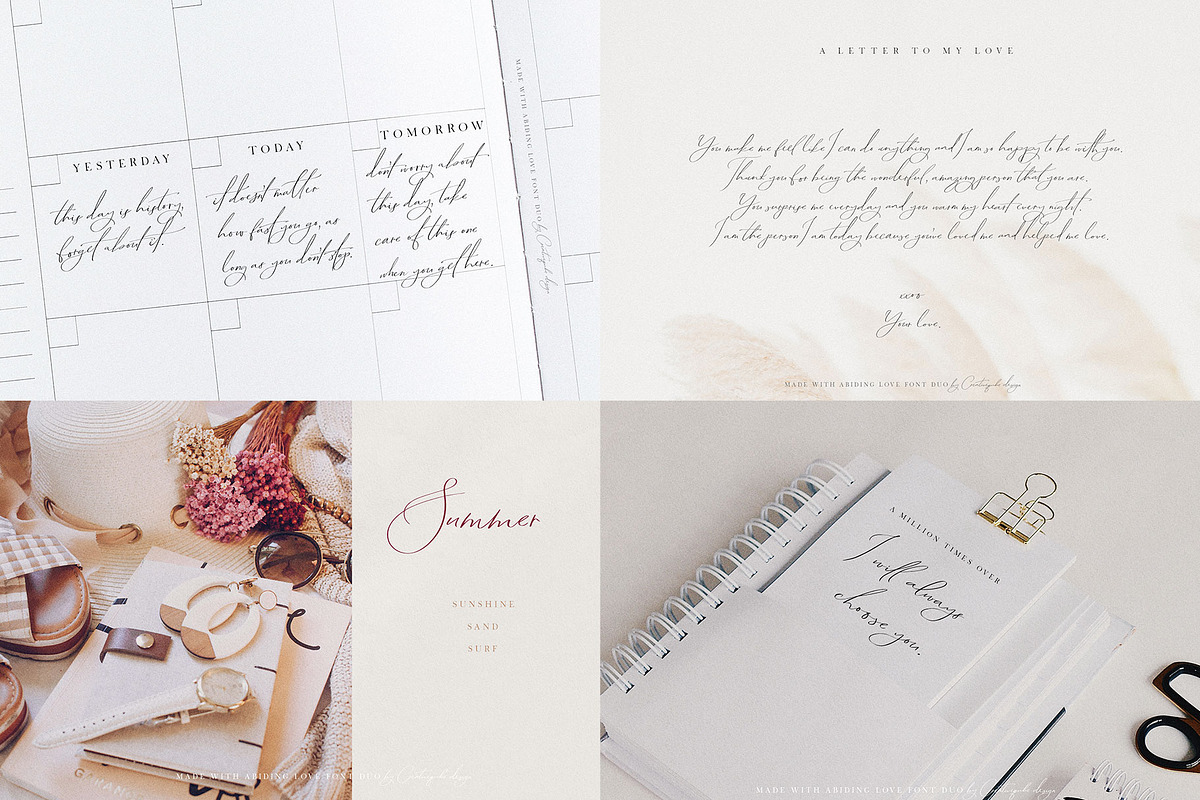 YESTERDAY
this day is history,
forget about it.
TODAY
it doesn't matter
how fast you go, as
long as you don't stop.
TOMORROW
don't worry about
this day, take
care of this one
when you get here.
MADE WITH ABIDING LOVE FONT DUO by
A LETTER TO MY LOVE
You make me feel like I can do anything and I am so happy to be with you.
Thank you for being the wonderful, amazing person that you are.
You surprise me everyday and you warm my heart every night.
I am the person I am today because you've loved me and helped me love.
xoxo
Your love.
MADE WITH ABIDING LOVE FONT DUO by
Summer
SUNSHINE
SAND
SURF
MADE WITH ABIDING LOVE FONT DUO by
A MILLION TIMES OVER
I will always
choose you.
MADE WITH ABIDING LOVE FONT DUO by